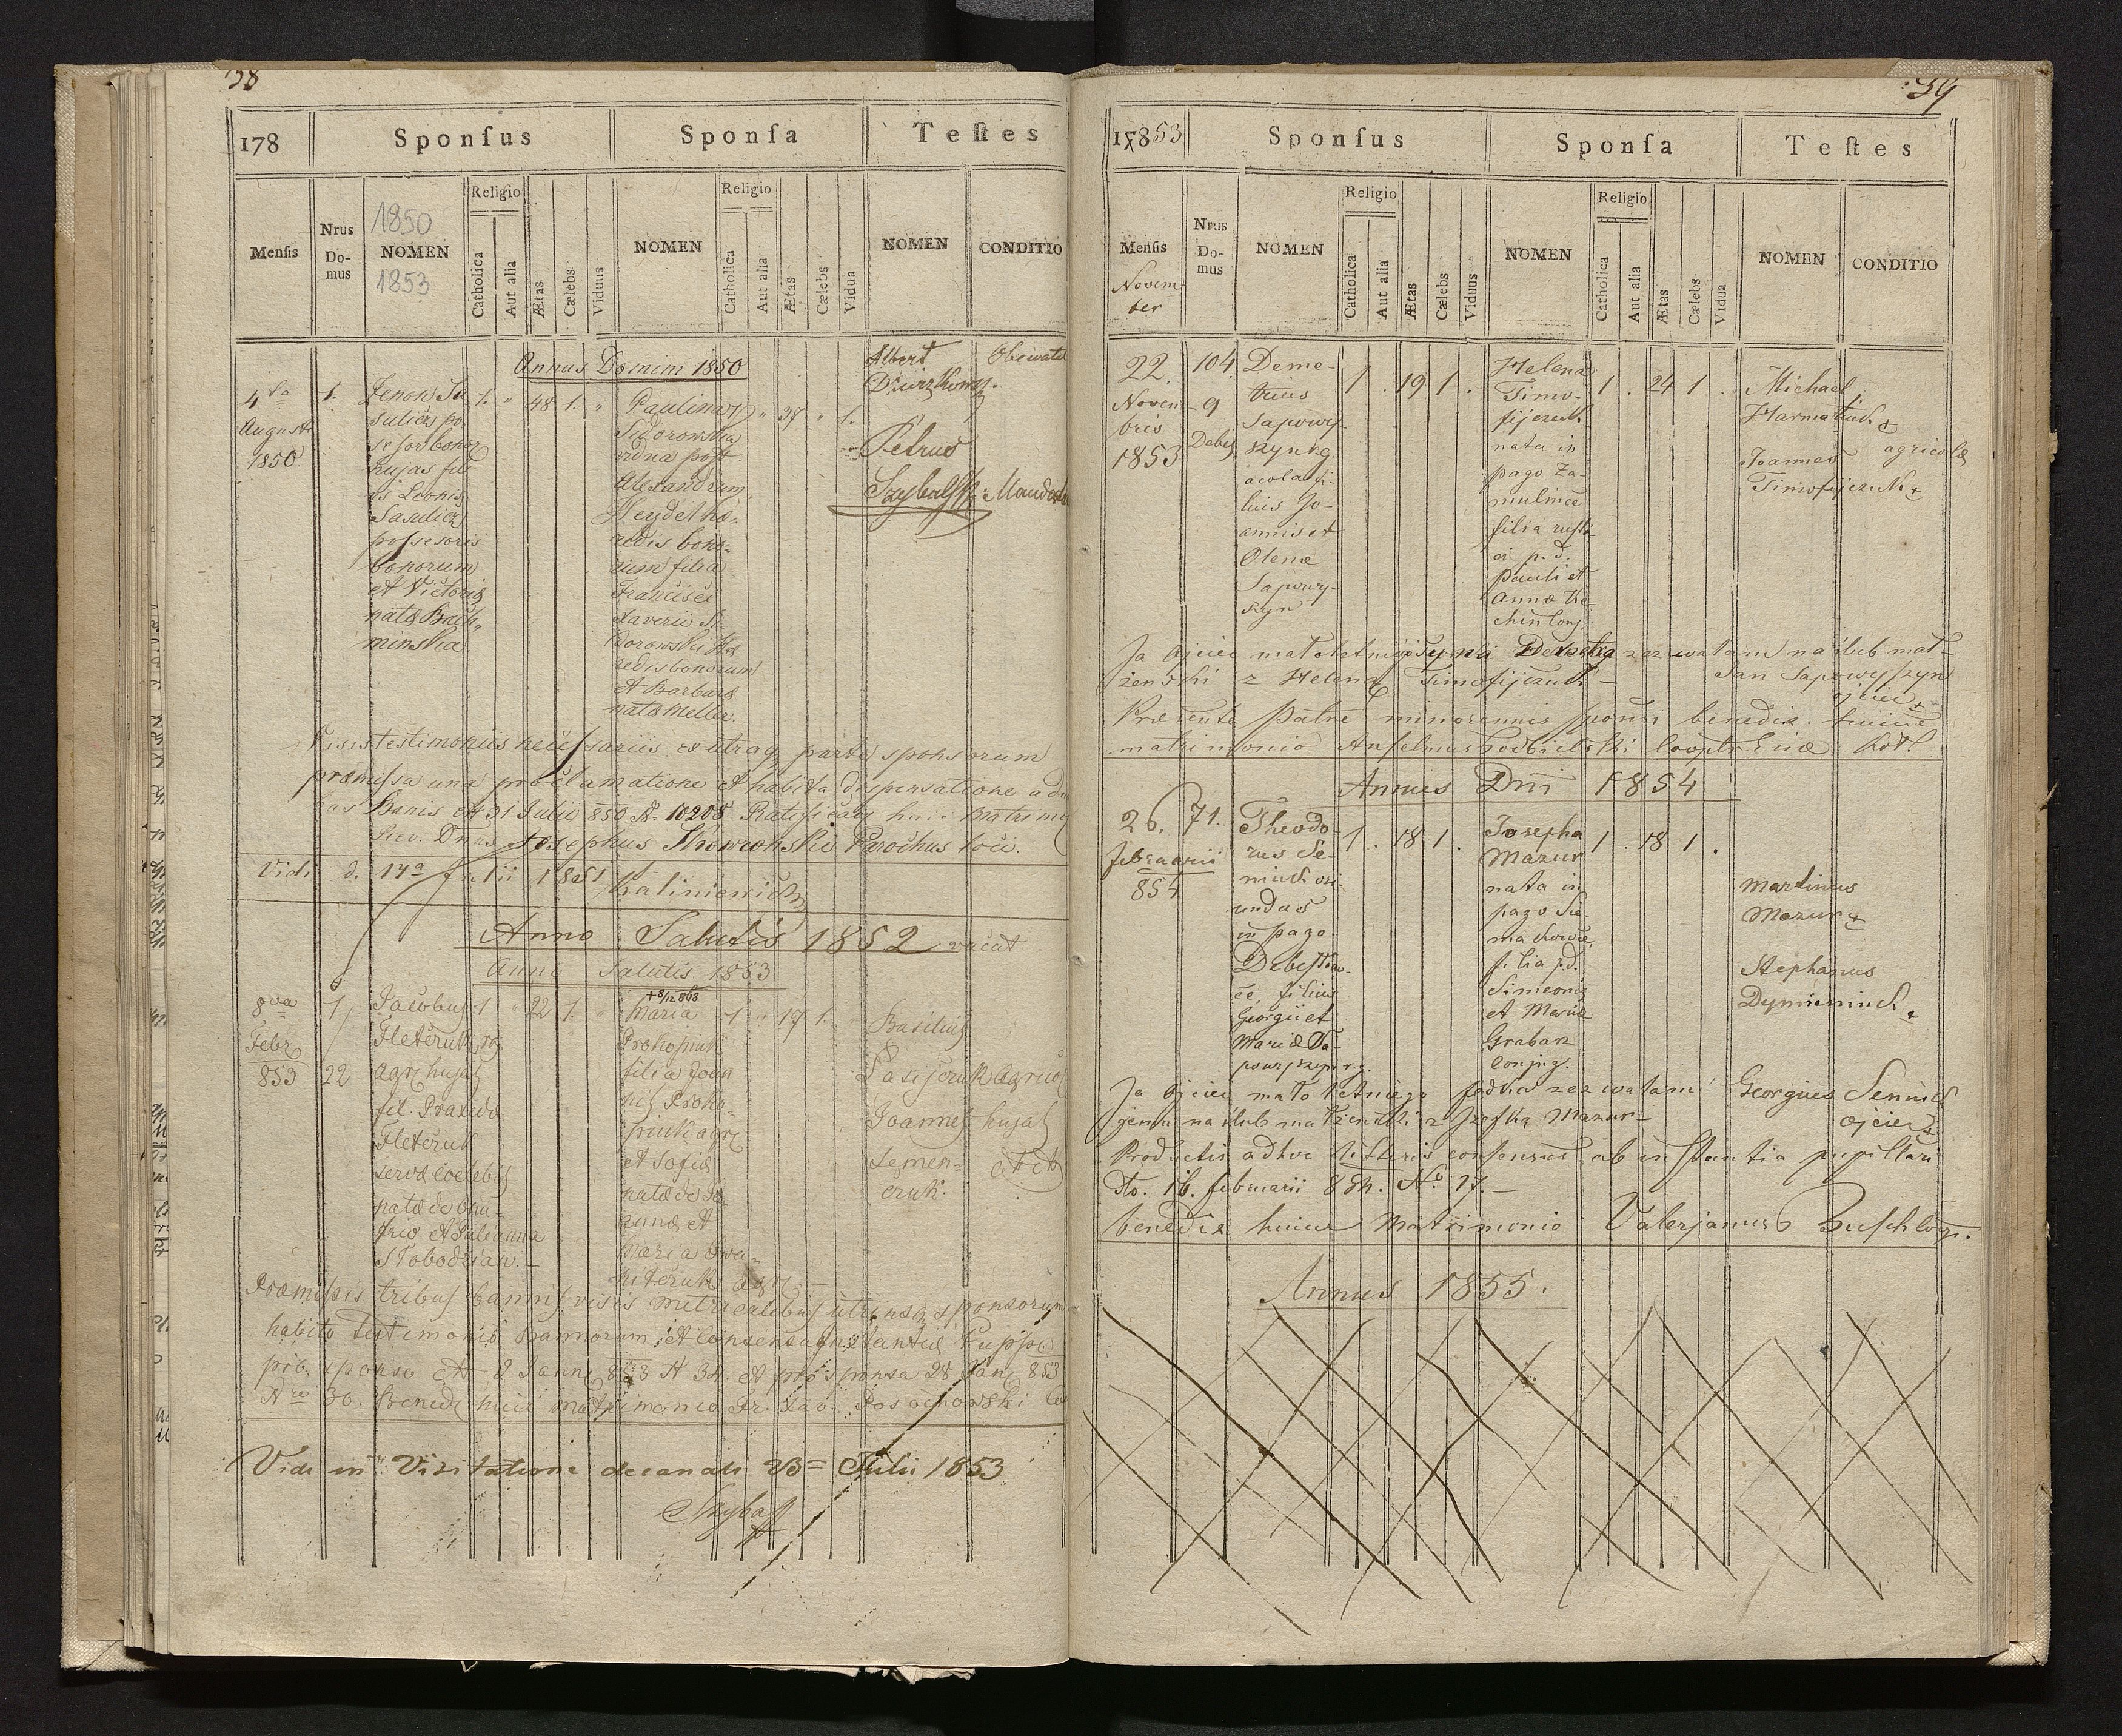 38
178 Sponſus Sponſa Teſtes
Menſis Nrus Domus NOMEN Religio Catholica Aut alia Ætas Cælebs Viduus NOMEN Religio Catholica Aut alia Ætas Cælebs Vidua NOMEN CONDITIO
1850
1853
Annus Domini 1850
4ta
Augusti
1850
1.
Zenon Sa
sulicz po
sesor bonor
hujas fili
us Leonis
Sasulicz
possesoris
bonorum
et Victoria
nata Bach
minska
1. " 48 1. "
Paulina
Sidorowska
vidua post
Alexandrum
Heydel hæ-
redis bono-
rum filia
Francisci
Xaverii Si
dorowski Hæ
redis bonorum
et Barbara
nata Meller.
1 " 37 " 1.
Albert
Petrus
Visis testimoniis necessariis ex utraq parte sponsorum
præmissa una proclamatione et habita dispensatione a du
bus Banis dto 31 Julii 850 N. 10208 Ratificavi huic matrimo
Rev. Dnus Josephus Skowronski Parochus loci.
Vidi d. 14a Julii 1851 Kalinienicz
Anno Salutis 1852 vacat
Anno Salutis 1853
8va
Febr
853
1
22
Jacobus
Fleteruk
agr hujas
fil.
Fleteruk
servæ coelebis
natæ de Onu-
frio et Julianna
Slobodzian.
1 " 22 1. "
+ 8/12 868
Maria
Prokopiuk
filia Joan
nis Proko-
piuk agri
et Sofia
natæ de Jo
anne et
Maria Iwa-
niteruk agr.
1 " 17 1. "
Basilius
Lasijczuk agricol
Joannes hujas
Semen-
czuk.
Præmissis tribus bannis visis metricalibus utriusq sponsorum
habito testimonio Bannorum, et
pro sponso dto 2 Janu 853 N 34. et pro sponsa 28 Jan 853
Nro 30. Bened huic matrimonio Fr. Xav. Rosochowski
Vidi in Visitatione decanali 23 Julii 1853
39
17853 Sponſus Sponſa Teſtes
Menſis Nrus Domus NOMEN Religio Catholica Aut alia Ætas Cælebs Viduus NOMEN Religio Catholica Aut alia Ætas Cælebs Vidua NOMEN CONDITIO
Novem
ber
22.
Novem-
bris
1853
104.
9
Debes
Deme-
trius
Sapowy-
szyn rg.
acola fi-
lius Jo-
annis et
Olenæ
Sapowy-
szyn
1 . 19 1 .
Helena
Timo-
fijczuk
nata in
pago Za-
mulince
filia rusti-
ci p. d.
Pauli et
Annæ Ka-
chin conj.
1 . 24 1 .
Michael
Harmatiuk +
Joannes agricolæ
Timofijczuk +
Ja ojciec małoletniego syna Demetra zezwalam na ślub mał-
żenski z Heleną Timofijczuk – Jan Sapowyszyn
ojciec +
Præsente Patre minorennis sponsi benedix. huic
matrimonio Anselmus Podbielski Cooptr
Annus Dni 1854
26.
februarii
854
71.
Theodo-
rus Se-
niuk ori-
undus
in pago
Debesław-
ce, filius
Georgii et
Mariæ Sa-
powyszyn rg.
1 . 18 1 .
Josepha
Mazur
nata in
pago Sie-
makowce,
filia p. d.
Simeonis
et Mariæ
Graban
conjug.
1 . 18 1 .
Martinus
Mazur +
Stephanus
Dymieniuk +
Ja ojciec małoletniego fedka zezwalam Georgius Seniuk
jemu na ślub małżenski z Jzefką Mazur – ojciec +
Productis adhuc litteris consensus ab instantia pupillari
dto. 16. februarii 854. No 17. –
benedix huic Matrimonio Valerjanus
Annus 1855.